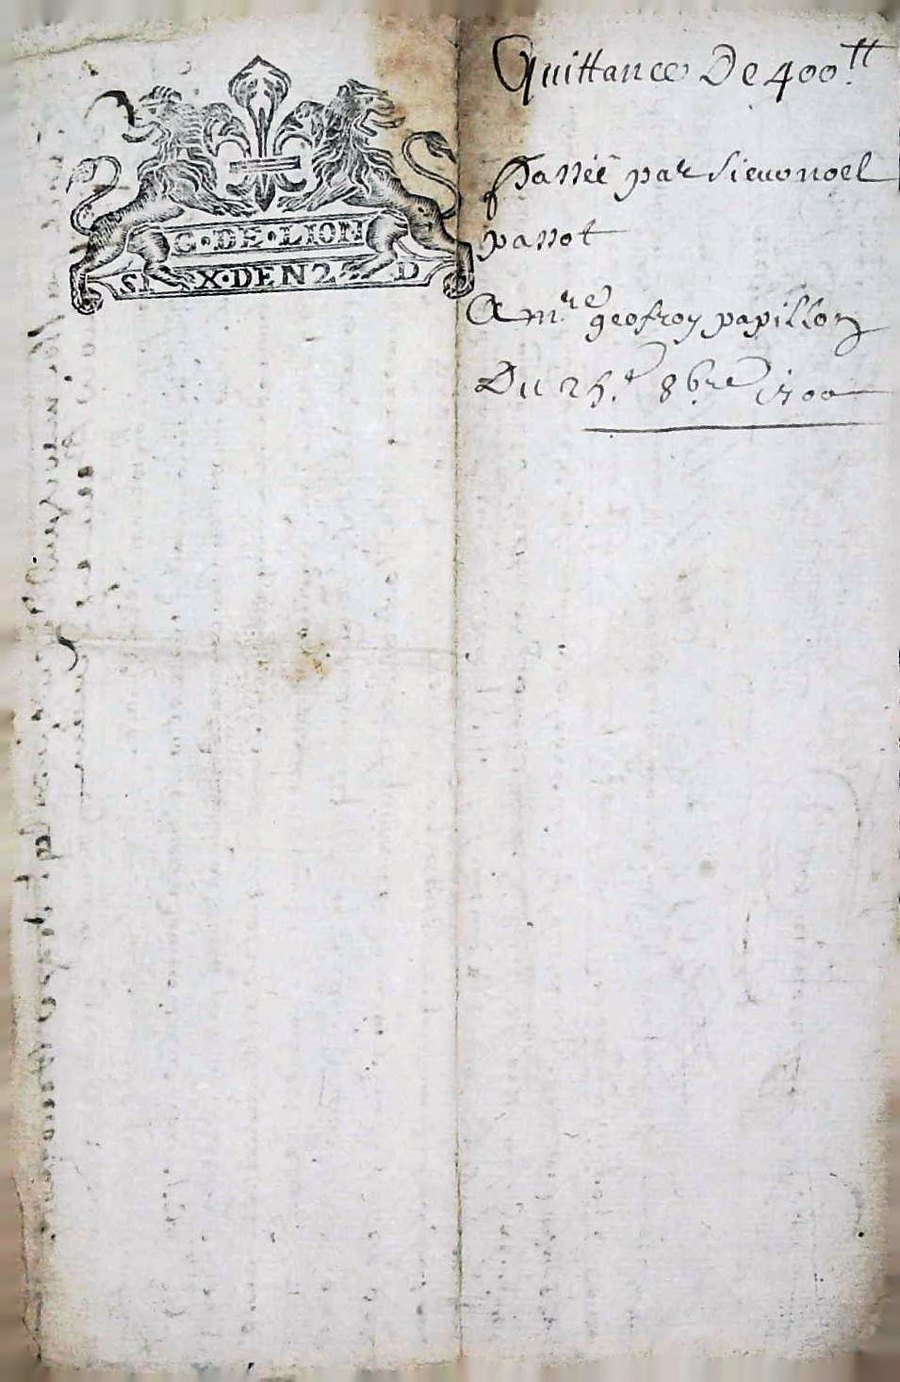 G·DE·LION
SIX·DEN 2 D
Quittance De 400.tt
passée par sieur noel
passot
A mre geofroy papillon
Du 25.e 8bre 1700